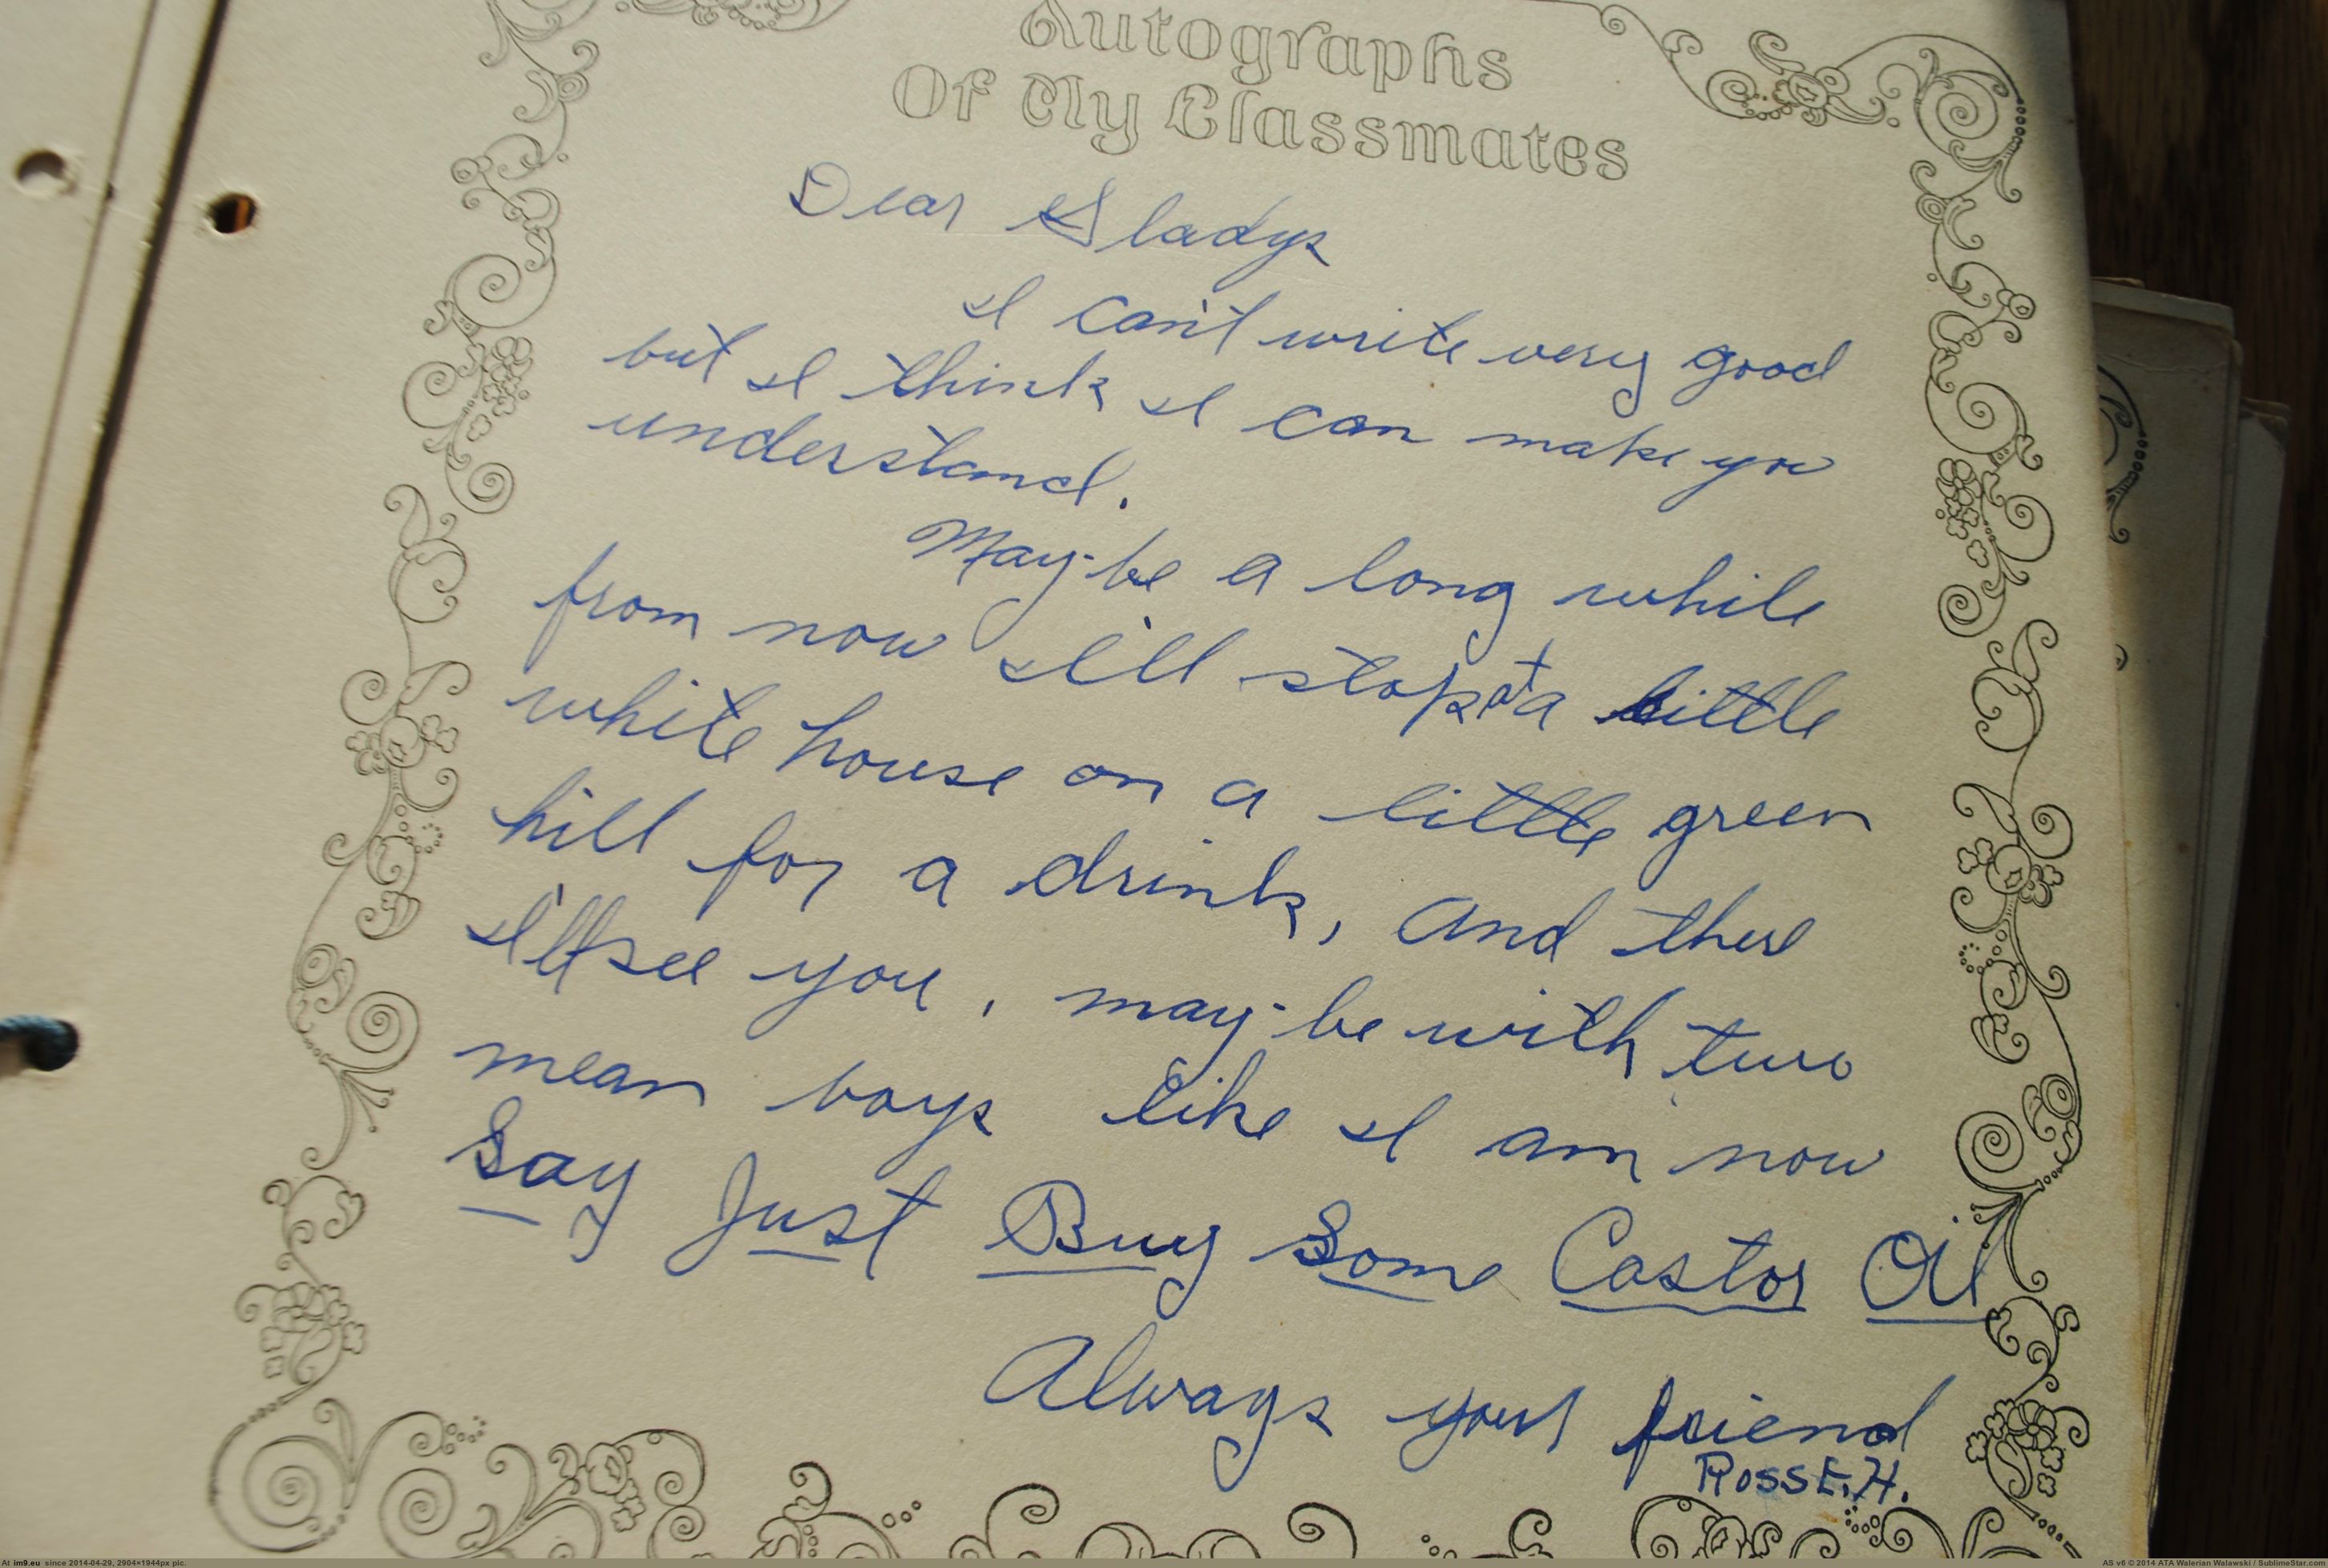 Autographs
Of My Classmates
Dear Gladys
I can't write very good
but I think I can make you
understand.
May-be a long while
from now I'll stop at a little
white house on a little green
hill for a drink, and there
I'll see you, may-be with two
mean boys like I am now
Say Just Buy Some Castor Oil
Always your friend
Ross E. H.
At im9.eu since 2014-04-29, 2904×1944px pic.
AS v6 © 2014 ATA Walerian Walawski / SublimeStar.com